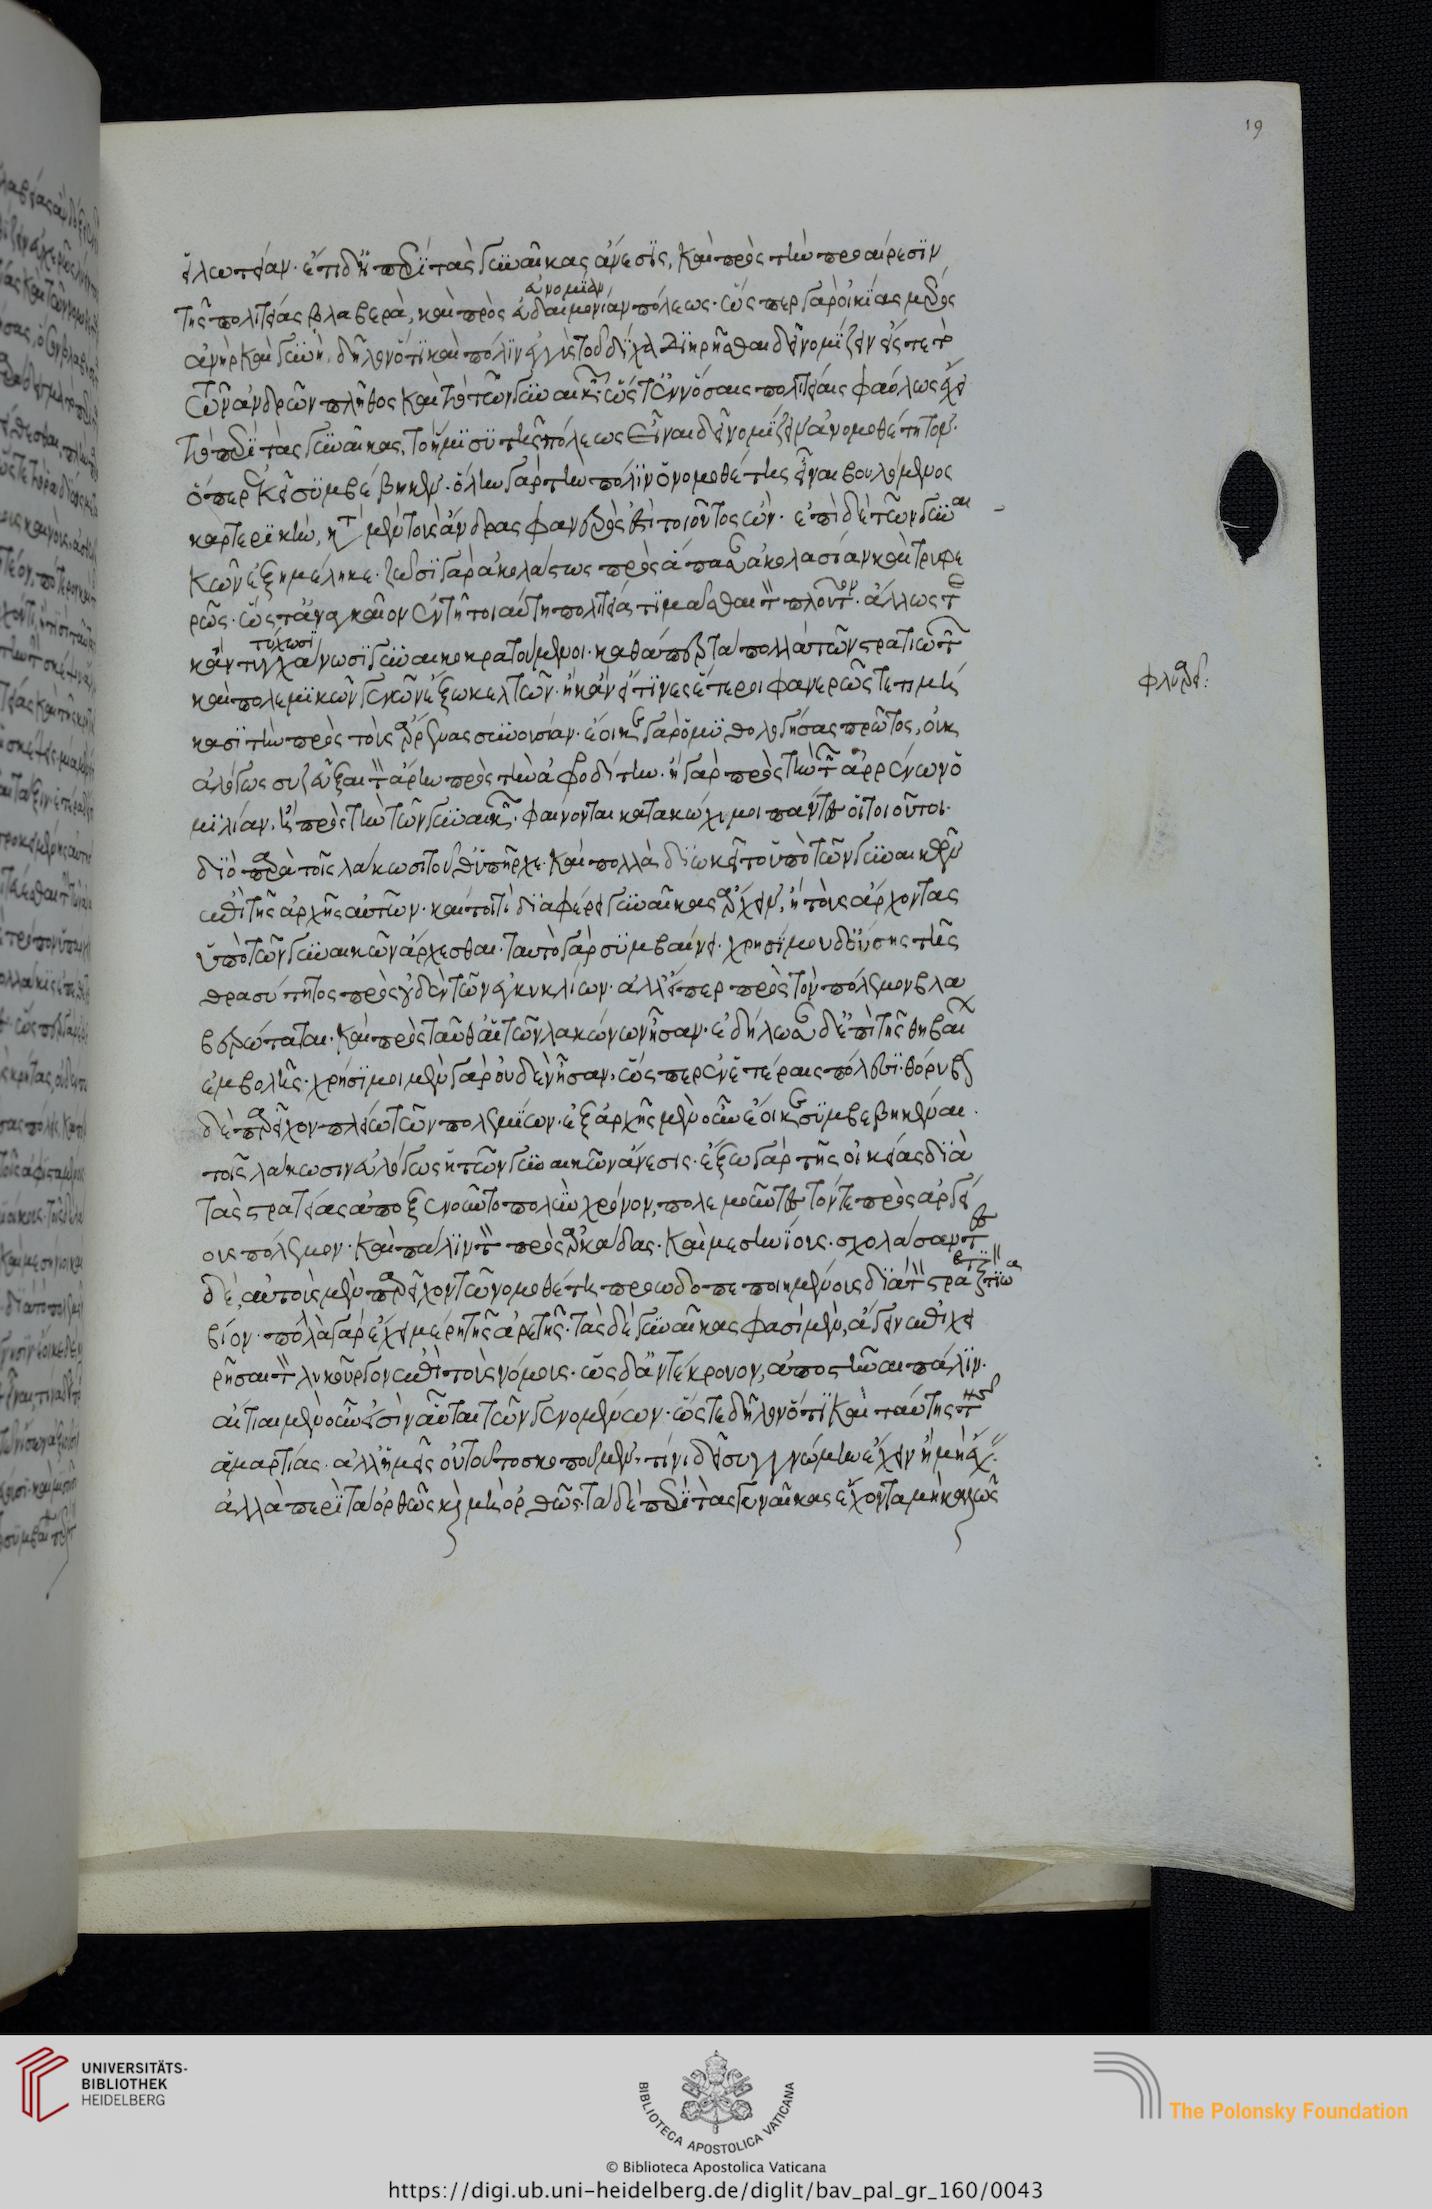 19
εἱλωτείαν. ἔτι δὲ ἡ περὶ τὰς γυναῖκας ἄνεσις, καὶ πρὸς τὴν προαίρεσιν
ἀνομίαν
τῆς πολιτείας βλαβερὰ, καὶ πρὸς εὐδαιμονίαν πόλεως. ὥσπερ γὰρ οἰκίας μέρος
ἀνὴρ καὶ γυνὴ, δῆλον ὅτι καὶ πόλιν ἐγγὺς τοῦ δίχα διηρῆσθαι δεῖ νομίζειν εἴς τε τὸ
τῶν ἀνδρῶν πλῆθος καὶ τὸ τῶν γυναικῶν. ὥστ' ἐν ὅσαις πολιτείαις φαύλως ἔχει
τὸ περὶ τὰς γυναῖκας, τὸ ἥμισυ τῆς πόλεως εἶναι δεῖ νομίζειν ἀνομοθέτητον.
ὅπερ ἐκεῖ συμβέβηκεν. ὅλην γὰρ τὴν πόλιν ὁ νομοθέτης εἶναι βουλόμενος
καρτερικὴν, κατὰ μὲν τοὺς ἄνδρας φανερός ἐστι τοιοῦτος ὤν. ἐπὶ δὲ τῶν γυναι
κῶν ἐξημέληκε. ζῶσι γὰρ ἀκολάστως πρὸς ἅπασαν ἀκολασίαν καὶ τρυφε
ρῶς. ὥστ' ἀναγκαῖον ἐν τῇ τοιαύτῃ πολιτείᾳ τιμᾶσθαι τὸν πλοῦτον. ἄλλως τε
τύχωσι
κἂν τυγχάνωσι γυναικοκρατούμενοι. καθάπερ τὰ πολλὰ τῶν στρατιωτικῶν
καὶ πολεμικῶν γενῶν ἔξω κελτῶν. ἢ κἂν εἴ τινες ἕτεροι φανερῶς τετιμή
κασι τὴν πρὸς τοὺς ἄρρενας συνουσίαν. ἔοικε γὰρ ὁ μυθολογήσας πρῶτος, οὐκ
ἀλόγως συζεῦξαι τὸν ἄρην πρὸς τὴν ἀφροδίτην. ἢ γὰρ πρὸς τὴν τῶν ἀρρένων ὁ
μιλίαν, ἢ πρὸς τὴν τῶν γυναικῶν. φαίνονται κατακώχιμοι πάντες οἱ τοιοῦτοι.
διὸ παρὰ τοῖς λάκωσι τοῦθ' ὑπῆρχε. καὶ πολλὰ διῳκεῖτο ὑπὸ τῶν γυναικῶν
ἐπὶ τῆς ἀρχῆς αὐτῶν. καί τοι τί διαφέρει γυναῖκας ἄρχειν, ἢ τοὺς ἄρχοντας
ὑπὸ τῶν γυναικῶν ἄρχεσθαι. ταυτὸ γὰρ συμβαίνει. χρησίμου δ' οὔσης τῆς
θρασύτητος πρὸς οὐδὲν τῶν ἐγκυκλίων. ἀλλ' εἴπερ πρὸς τὸν πόλεμον βλα
βερώταται. καὶ πρὸς ταῦθ' αἱ τῶν λακώνων ἦσαν. ἐδήλωσαν δ' ἐπὶ τῆς θηβαίων
ἐμβολῆς. χρήσιμοι μὲν γὰρ οὐδὲν ἦσαν, ὥσπερ ἐν ἑτέραις πόλεσι. θόρυβον
δὲ παρεῖχον πλείω τῶν πολεμίων. ἐξ ἀρχῆς μὲν οὖν ἔοικε συμβεβηκέναι
τοῖς λάκωσιν εὐλόγως ἡ τῶν γυναικῶν ἄνεσις. ἔξω γὰρ τῆς οἰκείας διὰ
τὰς στρατείας ἀπεξενοῦντο πολὺν χρόνον, πολεμοῦντες τόν τε πρὸς ἀργεί
ους πόλεμον. καὶ πάλιν τὸν πρὸς ἀρκάδας. καὶ μεσηνίους. σχολάσαντες
δέ, αὐτοὺς μὲν παρεῖχον τῷ νομοθέτῃ προωδοπεποιημένους διὰ τὸν στρατιωτικὸν
βίον. πολλὰ γὰρ ἔχει μέρη τῆς ἀρετῆς. τὰς δὲ γυναῖκας φασὶ μὲν, ἄγειν ἐπιχει
ρῆσαι τὸν λυκοῦργον ἐπὶ τοὺς νόμους. ὡς δ' ἀντέκρουον, ἀποστῆναι πάλιν.
αἴτιαι μὲν οὖν εἰσὶν αὗται τῶν γενομένων. ὥστε δῆλον ὅτι καὶ ταύτης τῆς
ἁμαρτίας. ἀλλ' ἡμεῖς οὐ τοῦτο σκοποῦμεν, τίνι δεῖ συγγνώμην ἔχειν ἢ μὴ ἔχειν
ἀλλὰ περὶ τοῦ ὀρθῶς καὶ μὴ ὀρθῶς. τὰ δὲ περὶ τὰς γυναῖκας ἔχοντα μὴ καλῶς
UNIVERSITÄTS-
BIBLIOTHEK
HEIDELBERG
BIBLIOTECA APOSTOLICA VATICANA
The Polonsky Foundation
© Biblioteca Apostolica Vaticana
https://digi.ub.uni-heidelberg.de/diglit/bav_pal_gr_160/0043